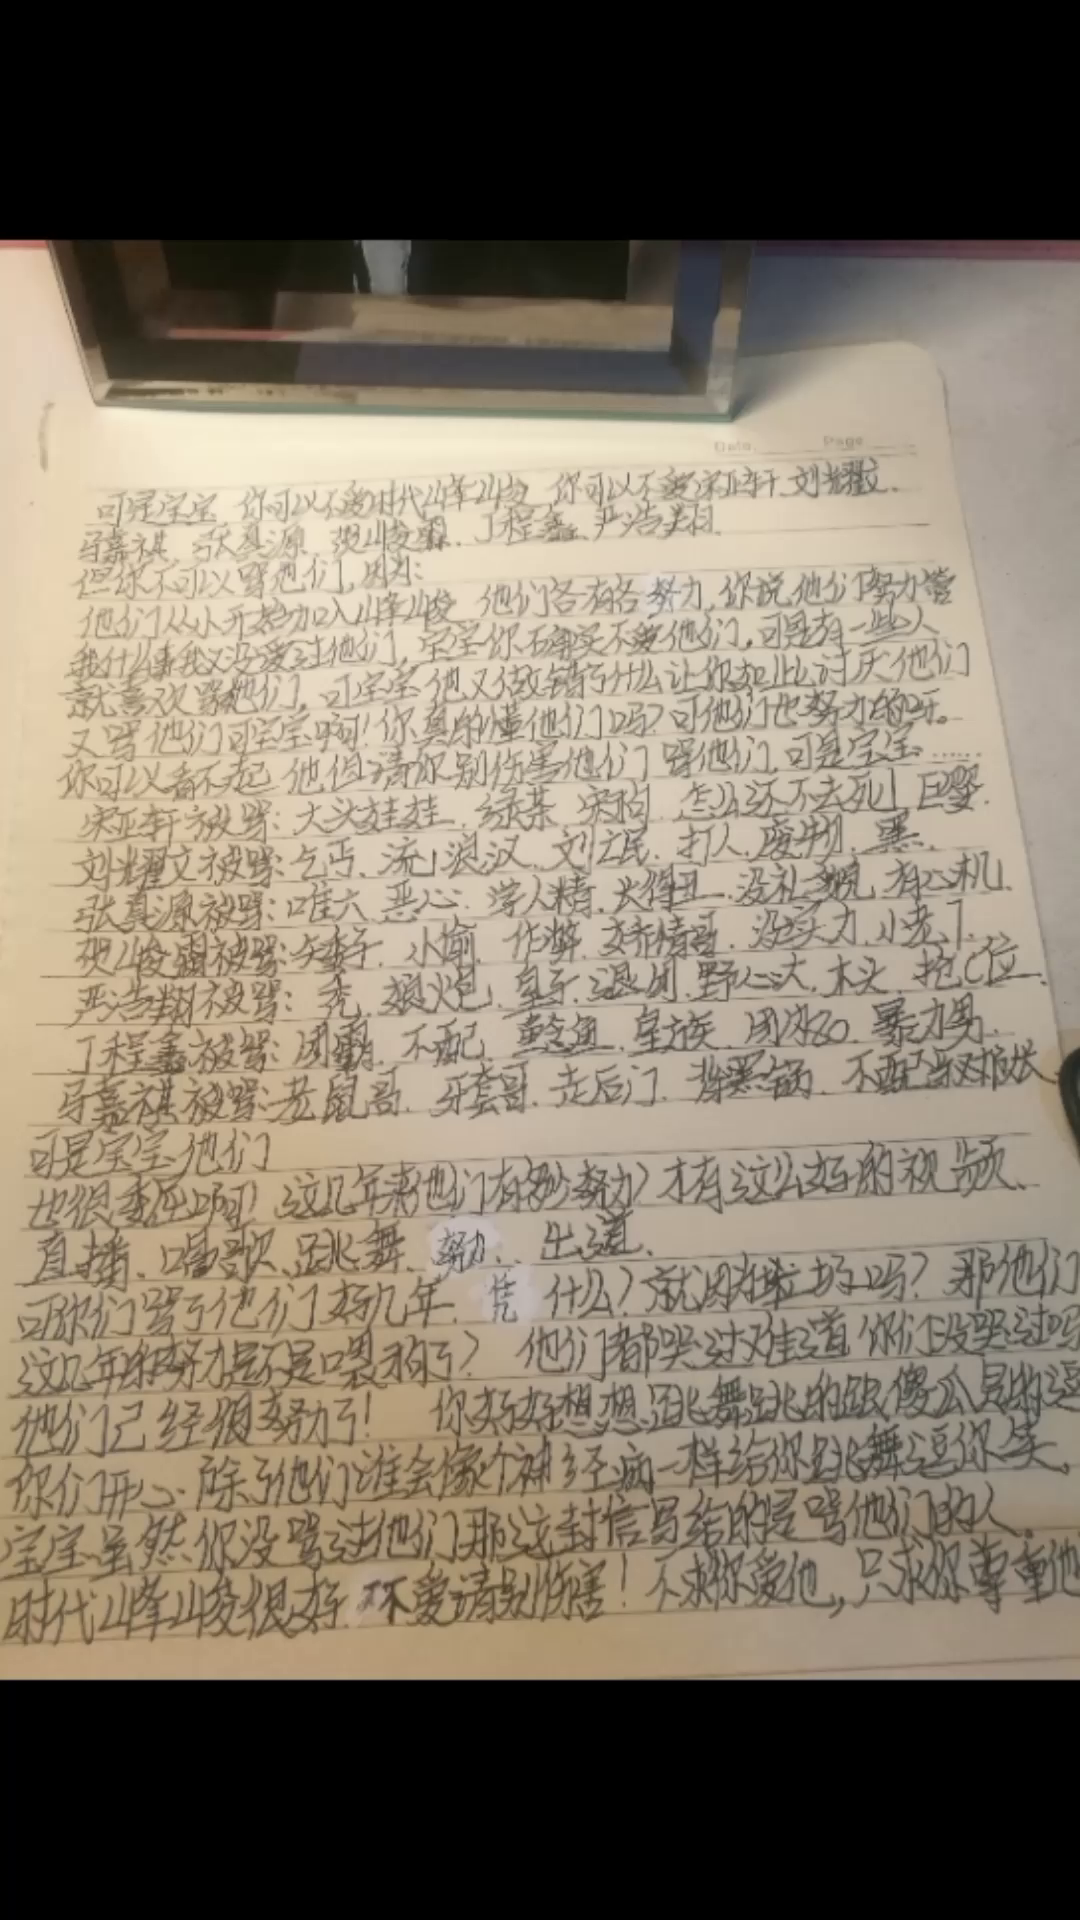 Date Page
可是宝宝 你可以不爱时代峰峻 你可以不爱宋亚轩.刘耀文.
马嘉祺.张真源.贺峻霖.丁程鑫.严浩翔.
但你不可以骂他们,因为:
他们从小开始加入峰峻 他们各有各努力,你说他们努力管
我什么事我又没爱过他们,宝宝你确实不爱他们,可是有一些人
就喜欢骂他们,可宝宝他又做错了什么让你如此讨厌他们
又骂他们可宝宝啊!你真的懂他们吗?可他们也努力的呀。
你可以看不起他但请你别伤害他们 骂他们,可是宝宝......
宋亚轩被骂:大头娃娃.绿茶 宋狗.怎么还不去死!巨婴.
刘耀文被骂:乞丐、流浪汉.刘 民.打人.废物.黑.
张真源被骂:唯六.恶心.学人精.长得丑.没礼貌.有心机.
贺峻霖被骂: 小偷.作弊. 哥.没实力.小老丁.
严浩翔被骂:秃. 炮.皇子.退团.野心大.木头.抢C位.
丁程鑫被骂:团霸.不配.鲶鱼.皇族.团内80.暴力男.
马嘉祺被骂:老鼠哥.牙套哥.走后门.背黑锅.不配当队长
可是宝宝他们
也很委屈啊!这几年来他们有多努力?才有这么好的视频、
直播、唱歌、跳舞、努力、出道、
可你们骂了他们好几年.凭什么?就因为 吗?那他们
这几年的努力是不是喂狗了?他们都哭过难道你们没哭过吗
他们已经很努力了! 你好好想想跳舞跳的跟傻瓜是的逗
你们开心.除了他们谁会像个神经病一样给你跳舞逗你笑,
宝宝虽然你没骂过他们那这封信写给的是骂他们的人。
时代峰峻很好.不爱请别伤害!不求你爱他,只求你尊重他